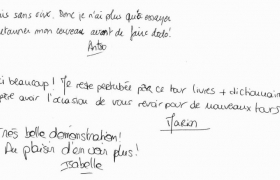 is sans rire. Donc je n'ai plus qu'à essayer
retourner mon cerveau avant de faire dodo!
Antho
i beaucoup! Je reste perturbée par ce tour livres + dictionnaire
père avoir l'occasion de vous revoir pour de nouveaux tours
Marion
Très belle démonstration!
Au plaisir d'en voir plus!
Isabelle